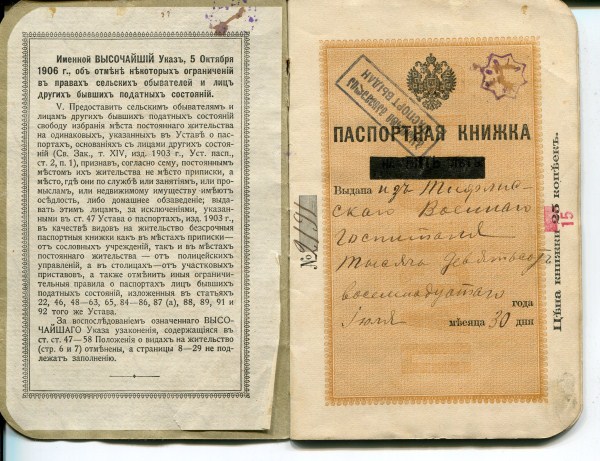 Именной ВЫСОЧАЙШІЙ Указъ, 5 Октября
1906 г., объ отмѣнѣ нѣкоторыхъ ограниченій
въ правахъ сельскихъ обывателей и лицъ
другихъ бывшихъ податныхъ состояній.
V. Предоставить сельскимъ обывателямъ и
лицамъ другихъ бывшихъ податныхъ состояній
свободу избранія мѣста постояннаго жительства
на одинаковыхъ, указанныхъ въ Уставѣ о пас-
портахъ, основаніяхъ съ лицами другихъ состоя-
ній (Св. Зак., т. XIV, изд. 1903 г., Уст. пасп.,
ст. 2, п. 1), признавъ, согласно сему, постояннымъ
мѣстомъ ихъ жительства не мѣсто приписки, а
мѣсто, гдѣ они по службѣ или занятіямъ, или про-
мысламъ, или недвижимому имуществу имѣютъ
осѣдлость, либо домашнее обзаведеніе; выда-
вать этимъ лицамъ, за исключеніями, указанны-
ными въ ст. 47 Устава о паспортахъ, изд. 1903 г.,
въ качествѣ видовъ на жительство безсрочныя
паспортныя книжки какъ въ мѣстахъ приписки—
отъ сословныхъ учрежденій, такъ и въ мѣстахъ
постояннаго жительства — отъ полицейскихъ
управленій, а въ столицахъ—отъ участковыхъ
приставовъ, а также отмѣнить иныя ограничи-
тельныя правила о паспортахъ лицъ бывшихъ
податныхъ состояній, изложенныя въ статьяхъ
22, 46, 48—63, 65, 84—86, 87 (а), 88, 89, 91 и
92 того же Устава.
За воспослѣдованіемъ означеннаго ВЫСО-
ЧАЙШАГО Указа узаконенія, содержащіяся въ
ст. ст. 47—58 Положенія о видахъ на жительство
(стр. 6 и 7) отмѣнены, а страницы 8—29 не под-
лежатъ заполненію.
ПАСПОРТЪ ВЫДАНЪ
ПАСПОРТНАЯ КНИЖКА
Выдана изъ Тифлис-
скаго Военнаго
Госпиталя
тысяча девятьсотъ
восемнадцатаго
года
Іюля мѣсяца 30 дня
№ 2191
Цѣна книжки 25 копѣекъ.
15